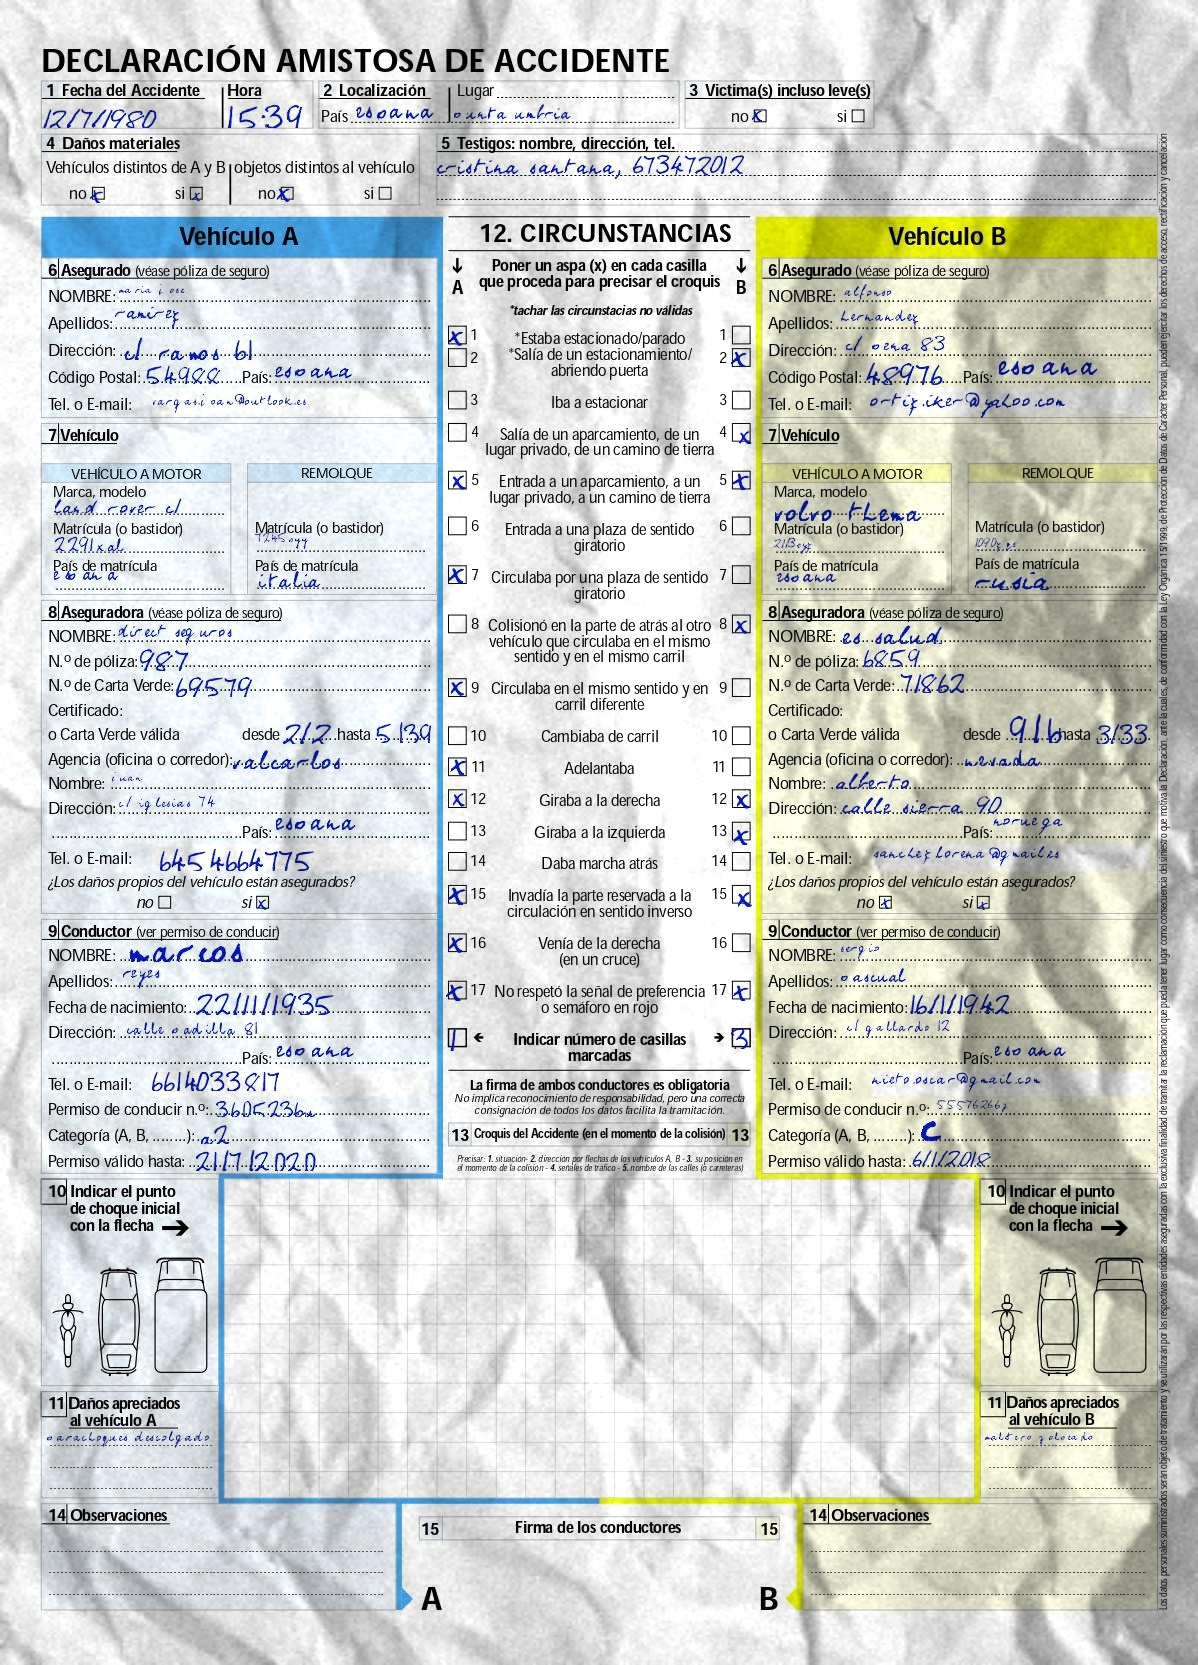 DECLARACIÓN AMISTOSA DE ACCIDENTE
1 Fecha del Accidente Hora 2 Localización Lugar 3 Victima(s) incluso leve(s)
12/7/1980 15:39 País espana punta umbria no x si
4 Daños materiales 5 Testigos: nombre, dirección, tel.
Vehículos distintos de A y B objetos distintos al vehículo cristina santana, 673472012
no x si x no x si
Vehículo A
6 Asegurado (véase póliza de seguro)
NOMBRE: maria jose
Apellidos: ramirez
Dirección: c/ ramos 61
Código Postal: 54988 País: espana
Tel. o E-mail: vargasjoan@outlook.es
7 Vehículo
VEHÍCULO A MOTOR REMOLQUE
Marca, modelo
land rover cl
Matrícula (o bastidor) Matrícula (o bastidor)
2291xal 7245oyy
País de matrícula País de matrícula
espana italia
8 Aseguradora (véase póliza de seguro)
NOMBRE: direct seguros
N.º de póliza: 987
N.º de Carta Verde: 69579
Certificado:
o Carta Verde válida desde 2/2 hasta 5/39
Agencia (oficina o corredor): valcarlos
Nombre: juan
Dirección: c/ iglesias 74
País: espana
Tel. o E-mail: 6454664775
¿Los daños propios del vehículo están asegurados?
no si x
9 Conductor (ver permiso de conducir)
NOMBRE: marcos
Apellidos: reyes
Fecha de nacimiento: 22/11/1935
Dirección: calle padilla 81
País: espana
Tel. o E-mail: 6614033817
Permiso de conducir n.º: 3605236
Categoría (A, B, ........): a2
Permiso válido hasta: 21/7/2020
10 Indicar el punto
de choque inicial
con la flecha
11 Daños apreciados
al vehículo A
parachoques descolgado
14 Observaciones
12. CIRCUNSTANCIAS
Poner un aspa (x) en cada casilla
que proceda para precisar el croquis
A B
*tachar las circunstacias no válidas
x 1 *Estaba estacionado/parado 1
2 *Salía de un estacionamiento/ 2 x
abriendo puerta
3 Iba a estacionar 3
4 Salía de un aparcamiento, de un 4 x
lugar privado, de un camino de tierra
x 5 Entrada a un aparcamiento, a un 5 x
lugar privado, a un camino de tierra
6 Entrada a una plaza de sentido 6
giratorio
x 7 Circulaba por una plaza de sentido 7
giratorio
8 Colisionó en la parte de atrás al otro 8 x
vehículo que circulaba en el mismo
sentido y en el mismo carril
x 9 Circulaba en el mismo sentido y en 9
carril diferente
10 Cambiaba de carril 10
x 11 Adelantaba 11
x 12 Giraba a la derecha 12 x
13 Giraba a la izquierda 13 x
14 Daba marcha atrás 14
x 15 Invadía la parte reservada a la 15 x
circulación en sentido inverso
x 16 Venía de la derecha 16
(en un cruce)
x 17 No respetó la señal de preferencia 17 x
o semáforo en rojo
1 Indicar número de casillas 3
marcadas
La firma de ambos conductores es obligatoria
No implica reconocimiento de responsabilidad, pero una correcta
consignación de todos los datos facilita la tramitación.
13 Croquis del Accidente (en el momento de la colisión) 13
Precisar: 1. situación- 2. dirección por flechas de los vehículos A, B - 3. su posición en
el momento de la colisión - 4. señales de tráfico - 5. nombre de las calles (o carreteras)
15 Firma de los conductores 15
A B
Vehículo B
6 Asegurado (véase póliza de seguro)
NOMBRE: alfonso
Apellidos: hernandez
Dirección: c/ pena 83
Código Postal: 48976 País: espana
Tel. o E-mail: ortiz.iker@yahoo.com
7 Vehículo
VEHÍCULO A MOTOR REMOLQUE
Marca, modelo
volvo thema
Matrícula (o bastidor) Matrícula (o bastidor)
País de matrícula País de matrícula
espana rusia
8 Aseguradora (véase póliza de seguro)
NOMBRE: es salud
N.º de póliza: 6859
N.º de Carta Verde: 71862
Certificado:
o Carta Verde válida desde 9/6 hasta 3/33
Agencia (oficina o corredor): nevada
Nombre: alberto
Dirección: calle sierra 90
País: noruega
Tel. o E-mail: sanchezlorena@gmail.es
¿Los daños propios del vehículo están asegurados?
no x si x
9 Conductor (ver permiso de conducir)
NOMBRE: sergio
Apellidos: pascual
Fecha de nacimiento: 16/1/1942
Dirección: c/ gallardo 12
País: espana
Tel. o E-mail: nieto.oscar@gmail.com
Permiso de conducir n.º: 55576266z
Categoría (A, B, ........): c
Permiso válido hasta: 6/1/2018
10 Indicar el punto
de choque inicial
con la flecha
11 Daños apreciados
al vehículo B
14 Observaciones
Los datos personales suministrados serán objeto de tratamiento y se utilizarán por las respectivas entidades aseguradas con la exclusiva finalidad de tramitar la reclamación que pueda tener lugar como consecuencia del siniestro que motiva la Declaración, ante la cuales, de conformidad con la Ley Orgánica 15/1999, de Protección de Datos de Carácter Personal, pueden ejercitar los derechos de acceso, rectificación y cancelación